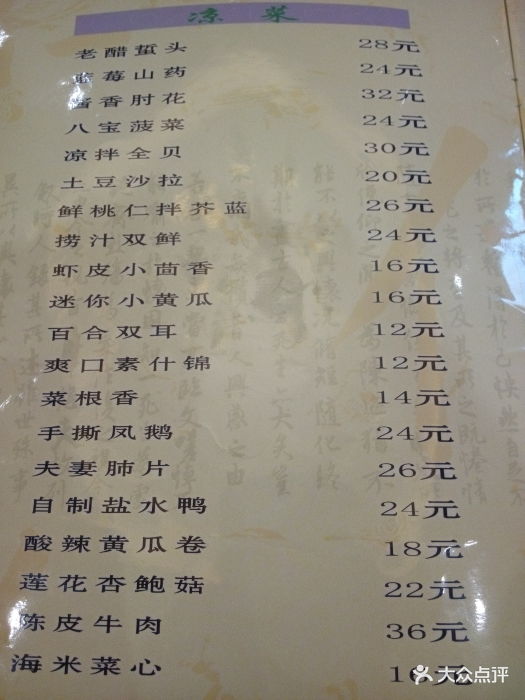 凉菜
老醋蜇头 28元
蓝莓山药 24元
酱香肘花 32元
八宝菠菜 24元
凉拌全贝 30元
土豆沙拉 20元
鲜桃仁拌芥蓝 26元
捞汁双鲜 24元
虾皮小茴香 16元
迷你小黄瓜 16元
百合双耳 12元
爽口素什锦 12元
菜根香 14元
手撕凤鹅 24元
夫妻肺片 26元
自制盐水鸭 24元
酸辣黄瓜卷 18元
莲花杏鲍菇 22元
陈皮牛肉 36元
海米菜心 16元
大众点评